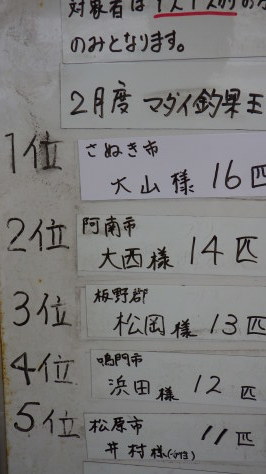 対象者は1人1人
のみとなります。
2月度 マダイ釣果王
1位 さぬき市
大山様 16匹
2位 阿南市
大西様 14匹
3位 板野郡
松岡様 13匹
4位 鳴門市
浜田様 12匹
5位 松原市
井村様 11匹